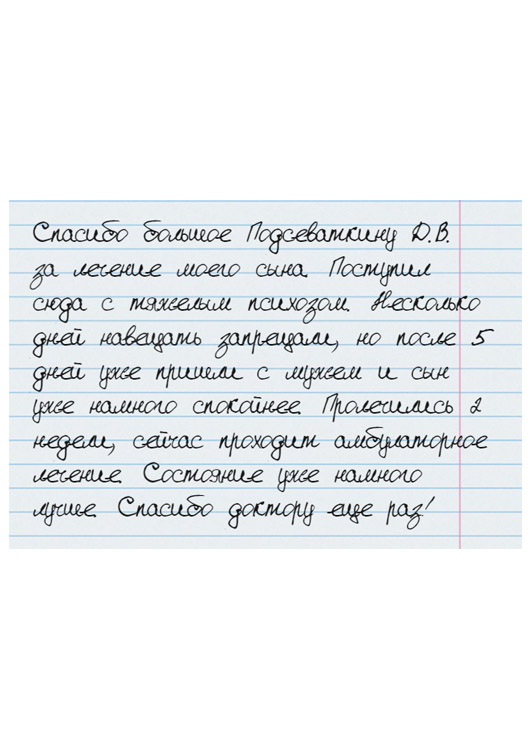 Спасибо большое Подсеваткину Д.В.
за лечение моего сына. Поступил
сюда с тяжелым психозом. Несколько
дней навещать запрещали, но после 5
дней уже пришли с мужем и сын
уже намного спокойнее. Пролечились 2
недели, сейчас проходит амбулаторное
лечение. Состояние уже намного
лучше. Спасибо доктору еще раз!